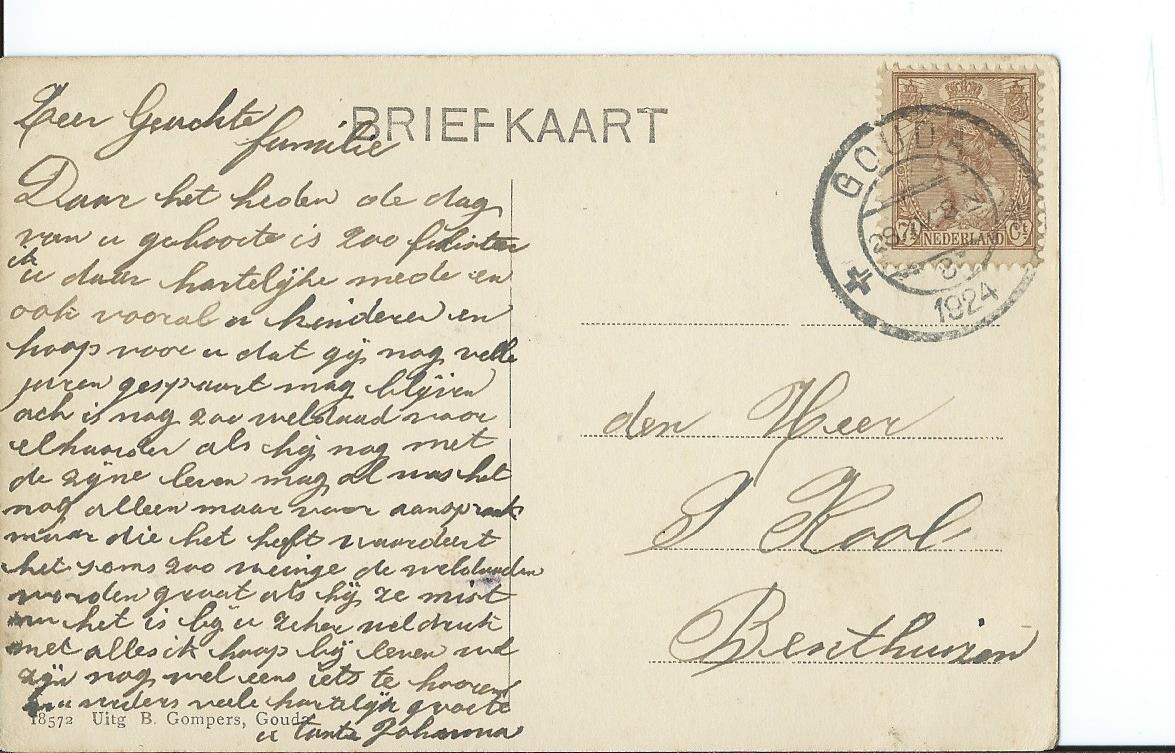 BRIEFKAART
Zeer Geachte
familie
Daar het heden de dag
van u geboorte is zoo felisiter
ik
u daar hartelijke mede en
ook vooral u kinderen en
hoop voor u dat gij nog velle
jaren gespaart mag blijven
och is nog zoo weldaad voor
elkaarder als hij nog met
de zijne leven mag al was het
nog alleen maar voor aanspraak
maar die het heft waardeert
het soms zoo weinge de weldaaden
worden groot als hij ze mist
nu het is bij u zeker wel druk
met alles ik hoop bij leven wel
zijn nog wel eens iets te hooren
verders veele hartelijk groete
u tante Johanna
18572 Uitg B. Gompers, Gouda
GOUDA
28 8
1924
7½ NEDERLAND Ct
den Heer
Kool
Benthuizen